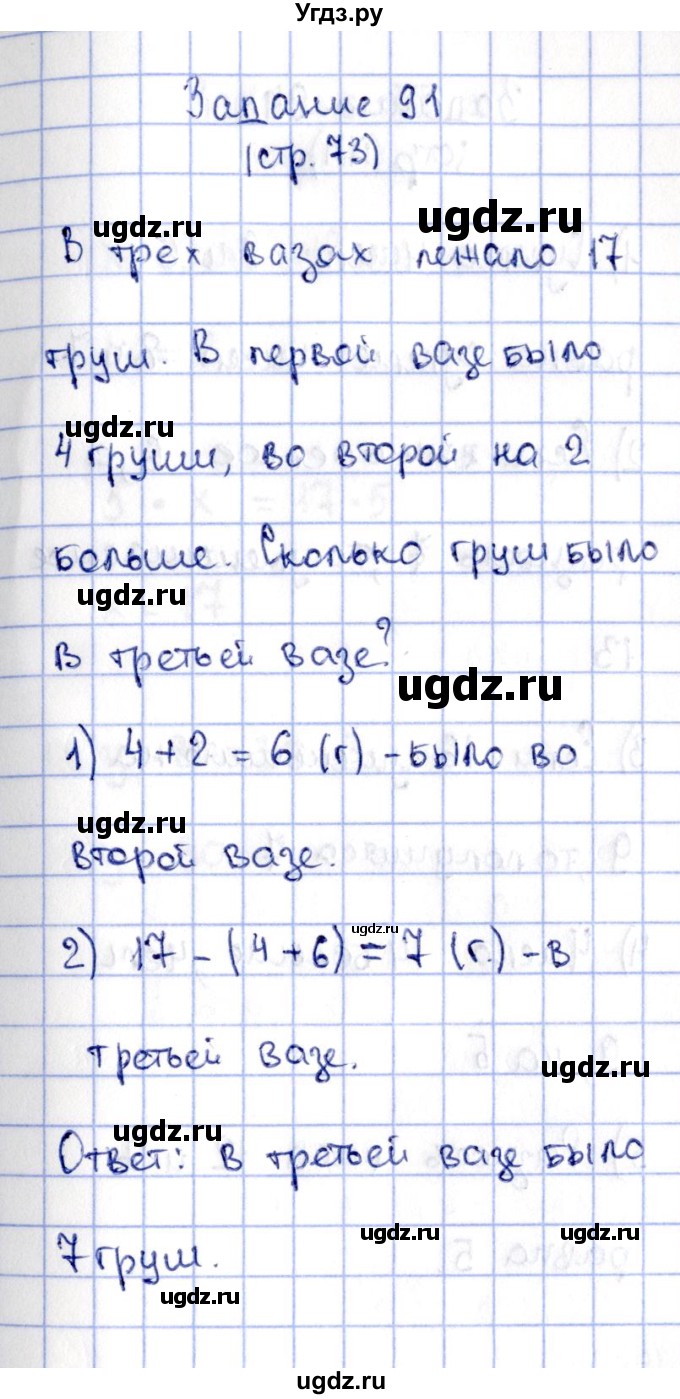 Угдз.ру
Задание 91
(стр. 73)
ugdz.ru ugdz.ru
В трех вазах лежало 17
груш. В первой вазе было
ugdz.ru
4 груши, во второй на 2
больше. Сколько груш было
ugdz.ru
в третьей вазе?
ugdz.ru
1) 4 + 2 = 6 (г) - было во
ugdz.ru
второй вазе.
ugdz.ru
2) 17 - (4 + 6) = 7 (г.) - в
третьей вазе.
ugdz.ru
ugdz.ru
Ответ: в третьей вазе было
ugdz.ru ugdz.ru
7 груш.
ugdz.ru
ugdz.ru